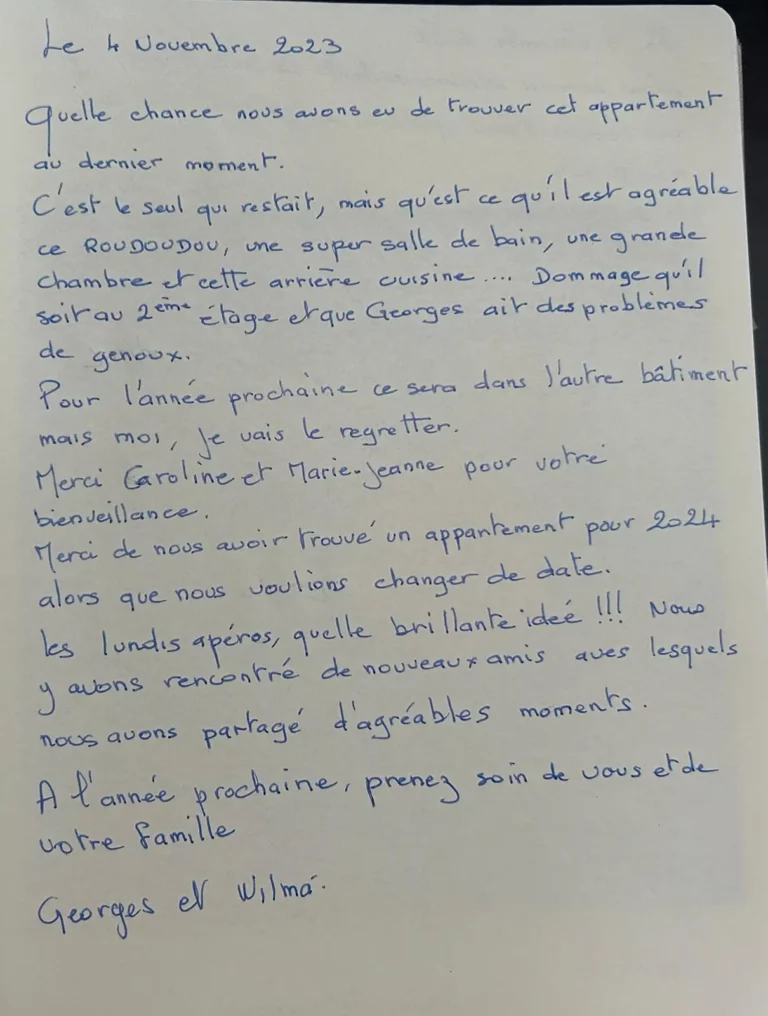 Le 4 Novembre 2023
Quelle chance nous avons eu de trouver cet appartement
au dernier moment.
C'est le seul qui restait, mais qu'est ce qu'il est agréable
ce ROUDOUDOU, une super salle de bain, une grande
chambre et cette arrière cuisine .... Dommage qu'il
soit au 2ème étage et que Georges ait des problèmes
de genoux.
Pour l'année prochaine ce sera dans l'autre bâtiment
mais moi, je vais le regretter.
Merci Caroline et Marie-Jeanne pour votre
bienveillance.
Merci de nous avoir trouvé un appartement pour 2024
alors que nous voulions changer de date.
les lundis apéros, quelle brillante ideé !!! Nous
y avons rencontré de nouveaux amis aves lesquels
nous avons partagé d'agréables moments.
A l'année prochaine, prenez soin de vous et de
votre famille
Georges et Wilma.